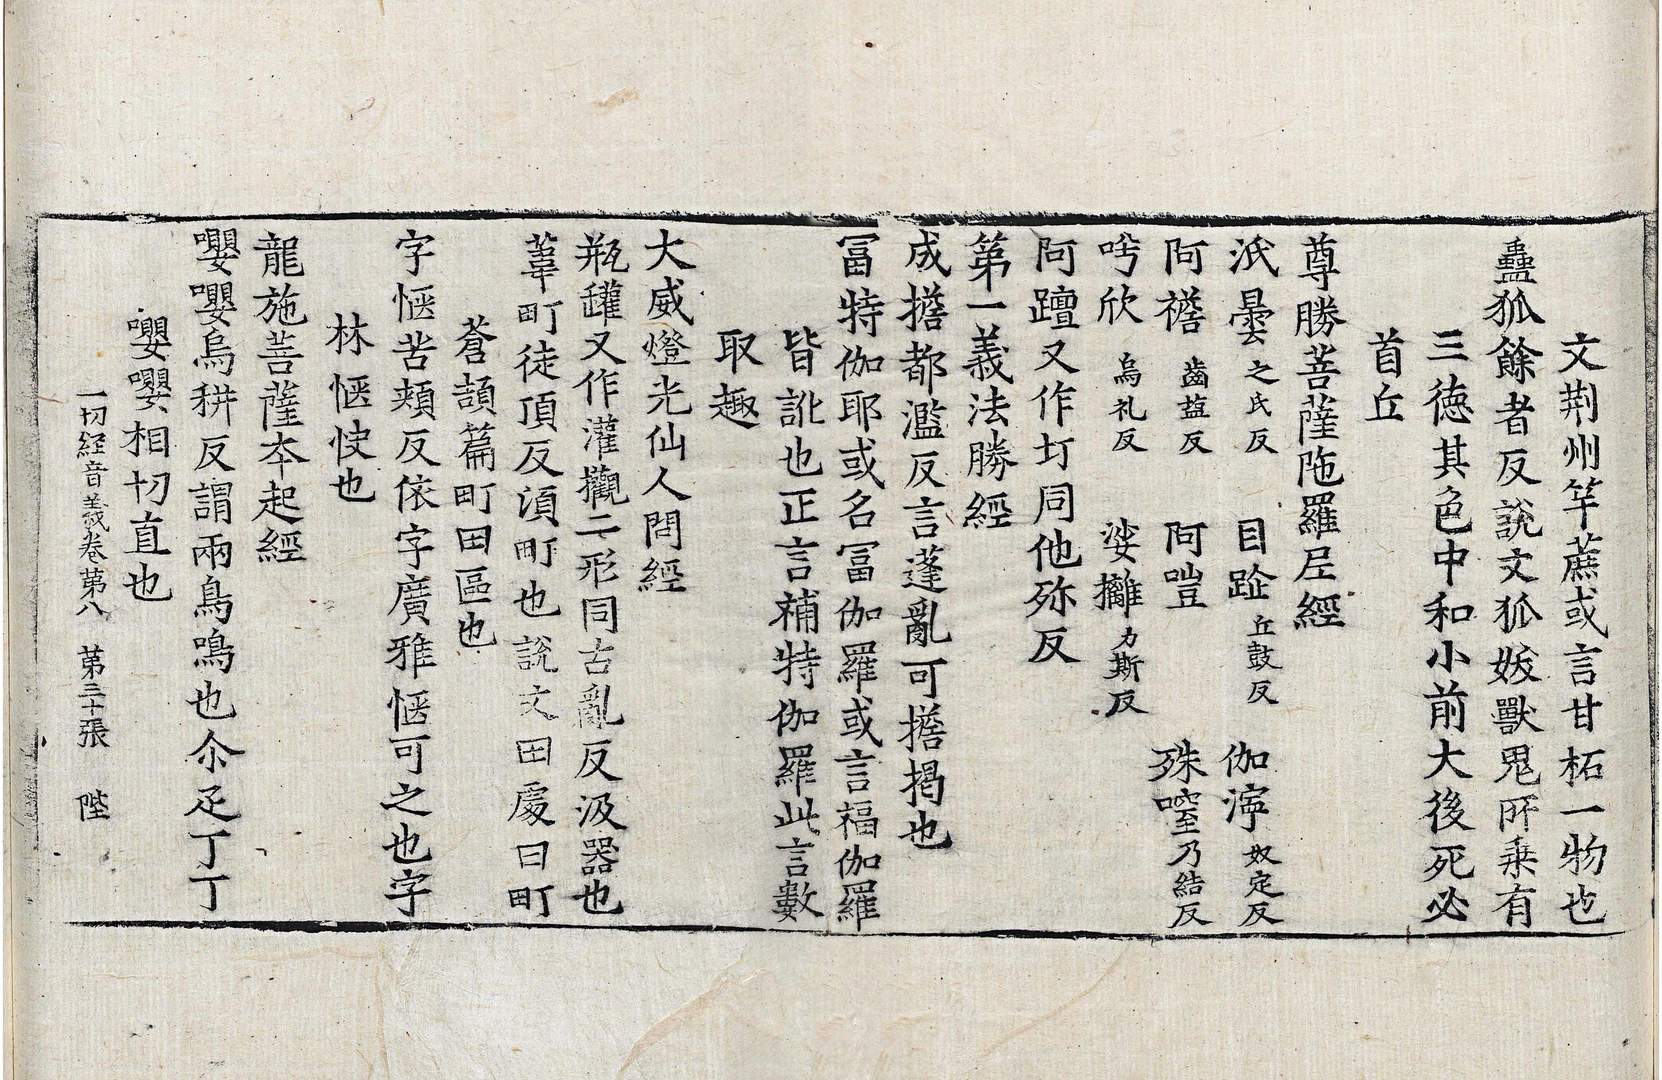 文荆州竿蔗或言甘柘一物也
蠱狐餘者反說文狐妖獸鬼所乗有
三徳其色中和小前大後死必
首丘
尊勝菩薩陁羅尼經
泜曇之氏反 目跐丘鼓反 伽濘奴定反
阿襜齒蓝反 阿嘊 殊㗌乃結反
呺欣烏礼反 娑攡力斯反
阿䟢又作圢同他殄反
第一義法勝經
成擔都濫反言蓬亂可擔揭也
冨特伽耶或名冨伽羅或言福伽羅
皆訛也正言補特伽羅此言數
取趣
大威燈光仙人問經
瓶罐又作灌鑵二形同古亂反汲器也
葦町徒頂反湏町也說文田處曰町
蒼頡篇町田區也
字愜苦頰反依字廣雅愜可之也字
林愜快也
龍施菩薩夲起經
嚶嚶烏耕反謂兩鳥鳴也尒疋丁丁
嚶嚶相切直也
一切経音義卷第八 第三十張 陛